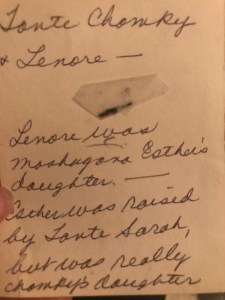 Tante Chomky
& Lenore —
Lenore was
Mashugana Esther's
daughter. —
Esther was raised
by Tante Sarah,
but was really
Chomky's daughter